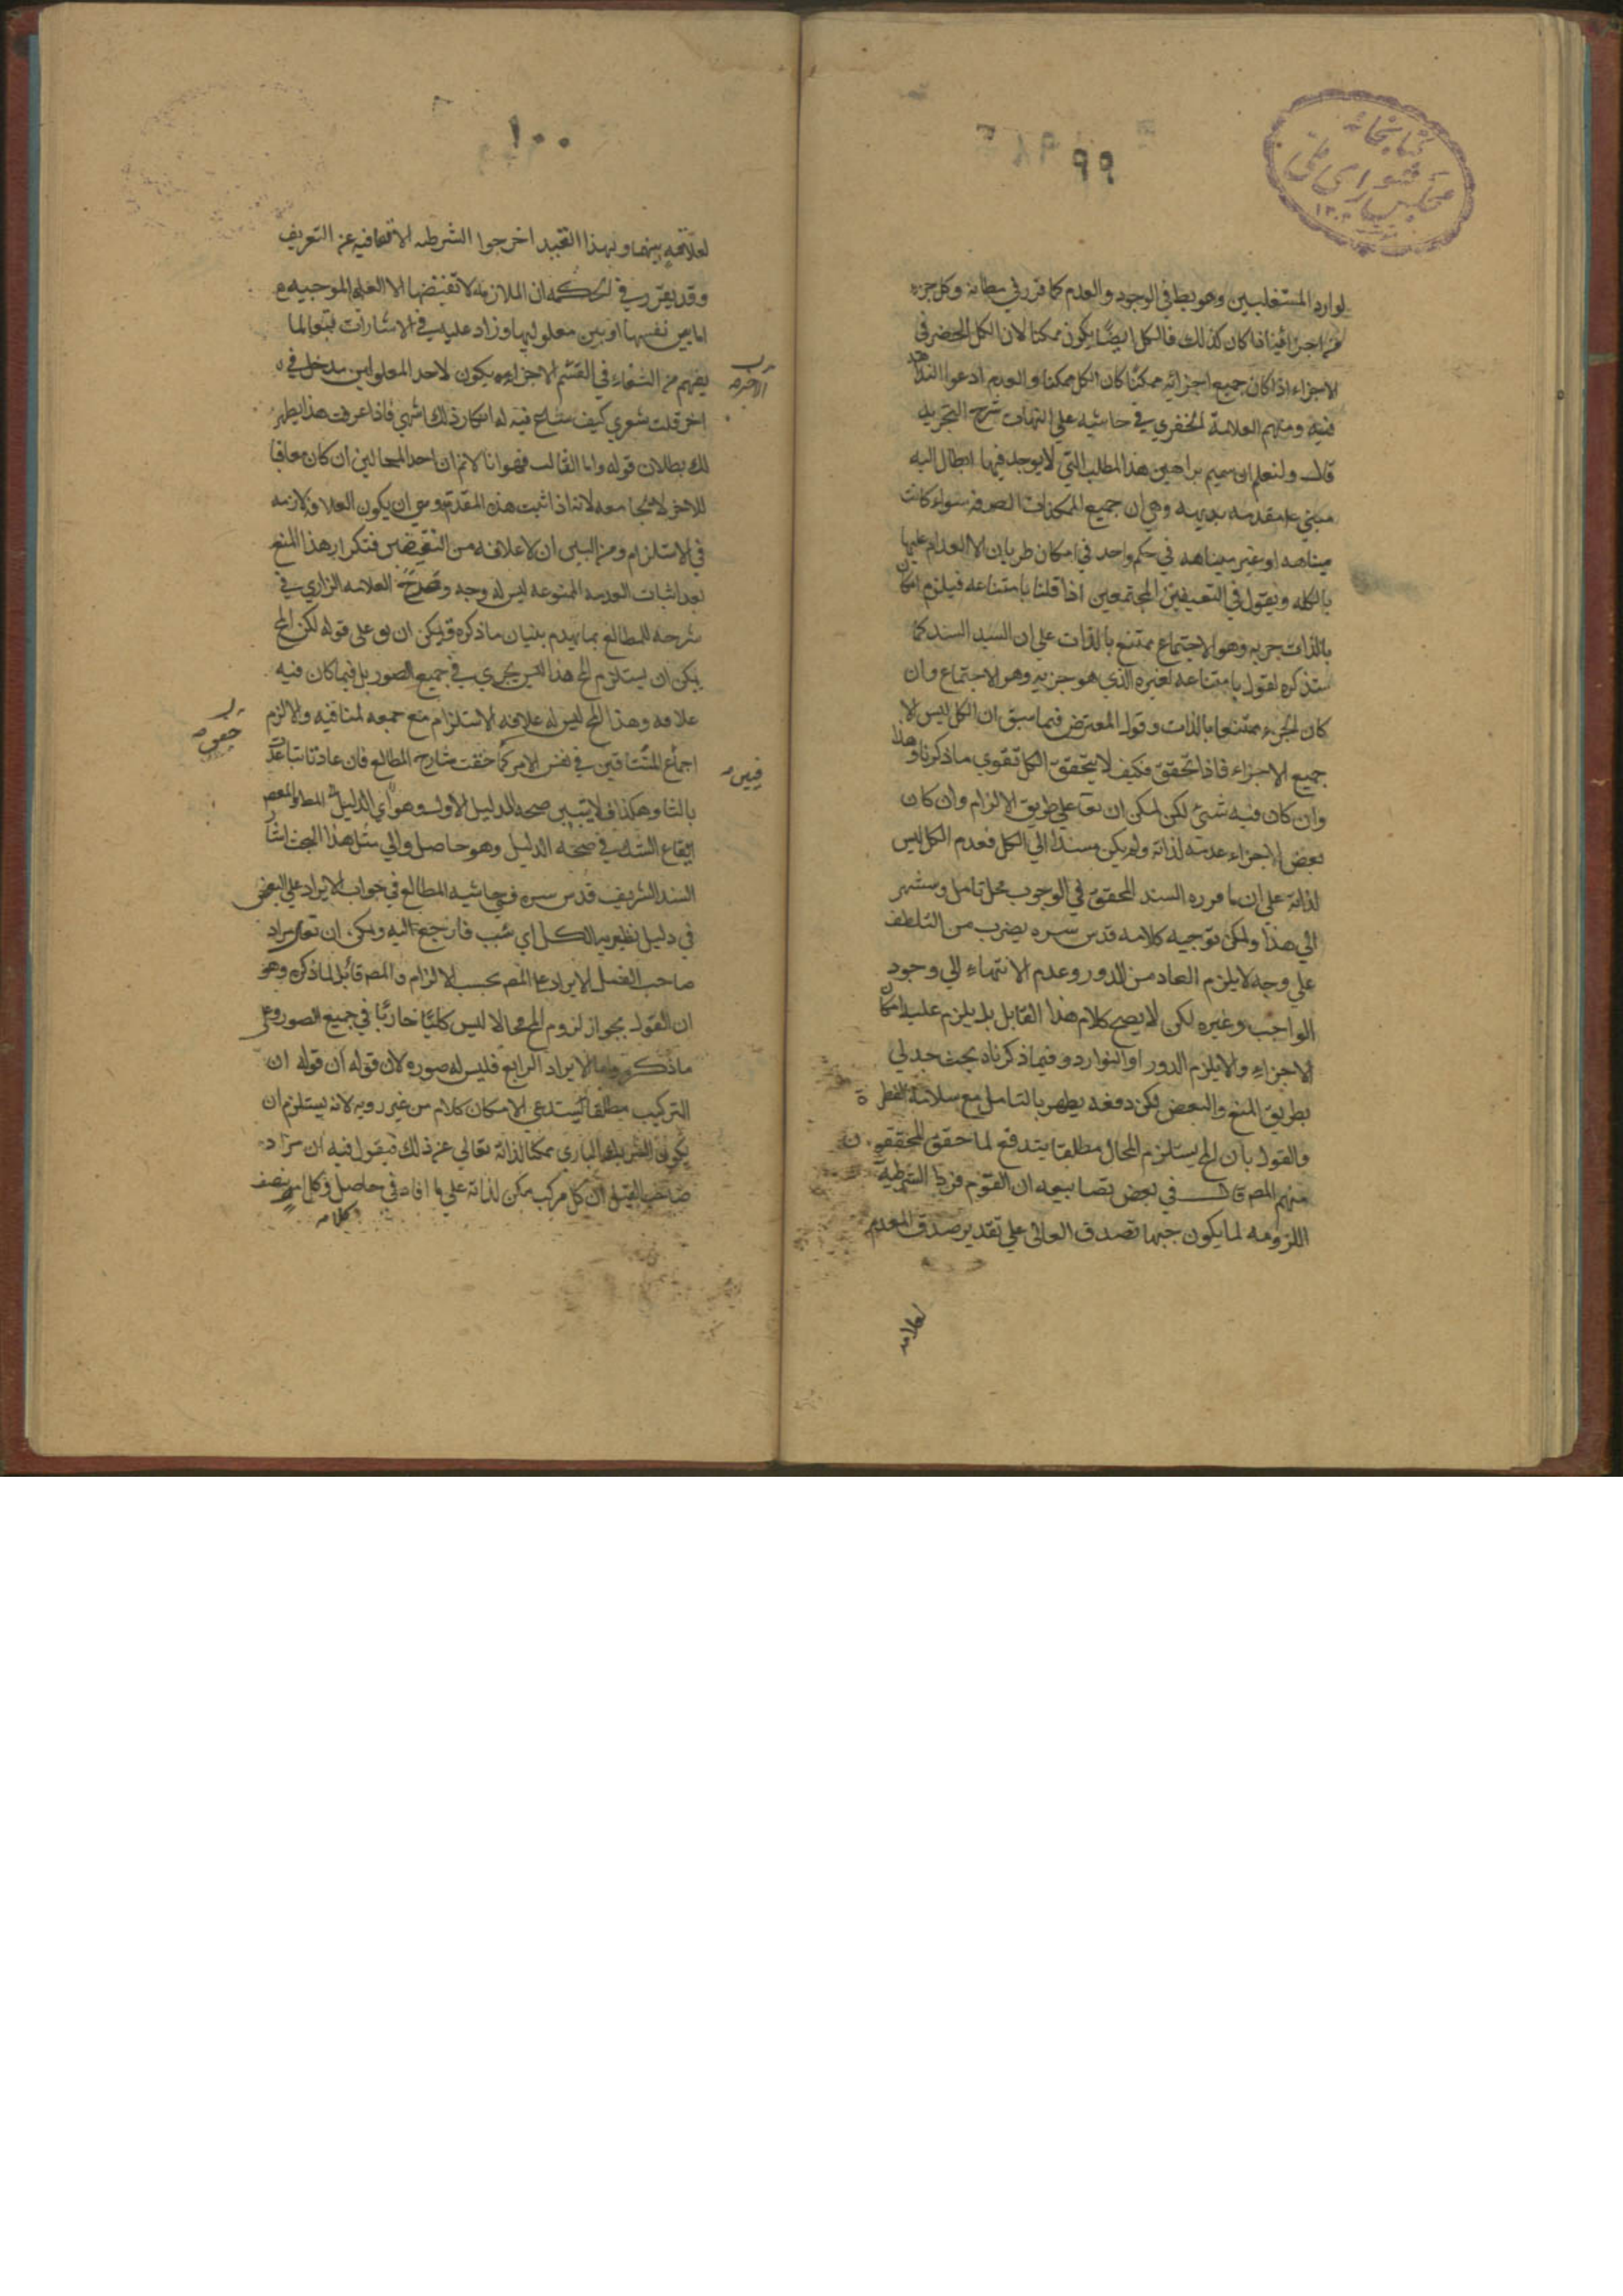 ٩٩
كتابخانه
مجلس شورای ملی
لوارد المستقلين وهو بط في الوجود والعدم كما قرر في مظانه وكل جزء
من اجزائنا اذا كان كذلك فالكل ايضا يكون ممكنا لان الكل الحضر في
الاجزاء اذا كان جميع اجزائه ممكنا كان الكل ممكنا والقوم ادعوا البداهة
فيه ومنهم العلامة الخفري في حاشيه على الهيات شرح التجريد
قال ولنعلم ان براهين هذا المطلب التي لا يوجد فيها ابطال اليه
مبني على مقدمه بديهيه وهي ان جميع الممكنات الصرفه سواء كانت
متناهيه او غير متناهيه في حكم واحد في امكان طريان الا العدام عليها
بالكليه ونقول في النقيضين المجتمعين اذا قلنا بامتناعه فيلزم امكان
بالذات جزيه وهو الاجتماع ممتنع بالذات على ان السيد السند كما
سنذكره لقول بامتناعه لغيره الذي هو جزيه وهو الاجتماع وان
كان الجزء ممتنعا بالذات وقول المعترض فيما سبق ان الكل ليس الا
جميع الاجزاء فاذا تحقق فكيف لا يتحقق الكل تقوي ما ذكرنا وهذا
وان كان فيه شيئ لكن لمكن ان يق على طريق الالزام وان كان
بعض الاجزاء عدمه لذاته ولم يكن مسندا الي الكل فعدم الكل ليس
لذاته على ان ما قرره السند المحقق في الوجوب محل تامل وسنشير
الي هذا ولمكن توجيه كلامه قدس سره بضرب من التلطف
على وجه لا يلزم الفساد من الدور وعدم الانتهاء الي وجود
الواجب وغيره لكن لا يصح كلام هذا القابل بل يلزم عليه امكان
الاجزاء والا يلزم الدور او التوارد وفيما ذكرناه بحث جدلي
بطريق المنع والبعض لكن دفعه يظهر بالتامل مع سلامة الفطرة
والقول بان المح يستلزم المحال مطلقا يندفع لما حقق المحققون
منهم المص قال في بعض تصانيفه ان القوم فسروا الشرطية
اللزوميه لما يكون جيها تصدق التالي على تقدير صدق المقدم
لعلاقه
١٠٠
لعلاقه بينهما وبهذا التقييد اخرجوا الشرطيه الاتفاقيه عن التعريف
وقد يقرر في الحكمه ان الملازمه لا تقتضيها الا العله الموجبه
اما بين نفسها او بين معلوليها وزاد عليه في الاشارات تبعا لما
يفهم من الشفاء في القسم الاخر ان يكون لاحد المعلولين مدخل في
الاخر قلت شعري كيف ساغ فيه له انكار ذلك فاذا عرفت هذا يظهر
لك بطلان قوله واما الثالث فهو انا لانم ان احد المحالين ان كان منافيا
للاخر لا يجامعه لانه اذا ثبت هذه المقدمه وهي ان يكون العلاقه لازمه
في الاستلزام ومن البين ان لا علاقه من النقيضين فتكرار هذا المنع
بعد اثبات المقدمه الممنوعه ليس له وجه وصرح العلامه الرازي في
شرحه للمطالع بما يهدم بنيان ما ذكره ويمكن ان يق على قوله لكن المح
يمكن ان يستلزم المح هذا الحين يجري في جميع الصور بل فيما كان فيه
علاقه وهذا المح ليس له علاقه الاستلزام مع جمعه لمنافيه والا لزم
اجماع المتنافين في نفس الامر كما حقق شارح المطالع فان عادتنا تباعدت
بالتا وهكذا فلا يتبين صحه الدليل الاول وهو اي الدليل
ايقاع الشك في صحه الدليل وهو حاصل والي مثل هذا البحث اشار
السند الشريف قدس سره في حاشيه المطالع في جواب الايراد على البعض
في دليل نظريه الكل اي شب فارجع اليه ولمكن ان يقال مراد
صاحب الفصل الايراد على المص بحسب الالزام والمص قائل لما ذكره وهو
ان القول بجواز لزوم المح محالا ليس كليا جاريا في جميع الصور وعلى
ما ذكره واما الايراد الرابع فليس له صوره لان قوله ان قوله ان
التركيب مطلقا يستدعي الامكان كلام من غير رويه لانه يستلزم ان
يكون الشريك الباري ممكنا لذاته تعالى عن ذلك فيقول فيه ان مراد
صاحب القيل ان كل مركب ممكن لذاته على ما افاد في حاصل
كلامه